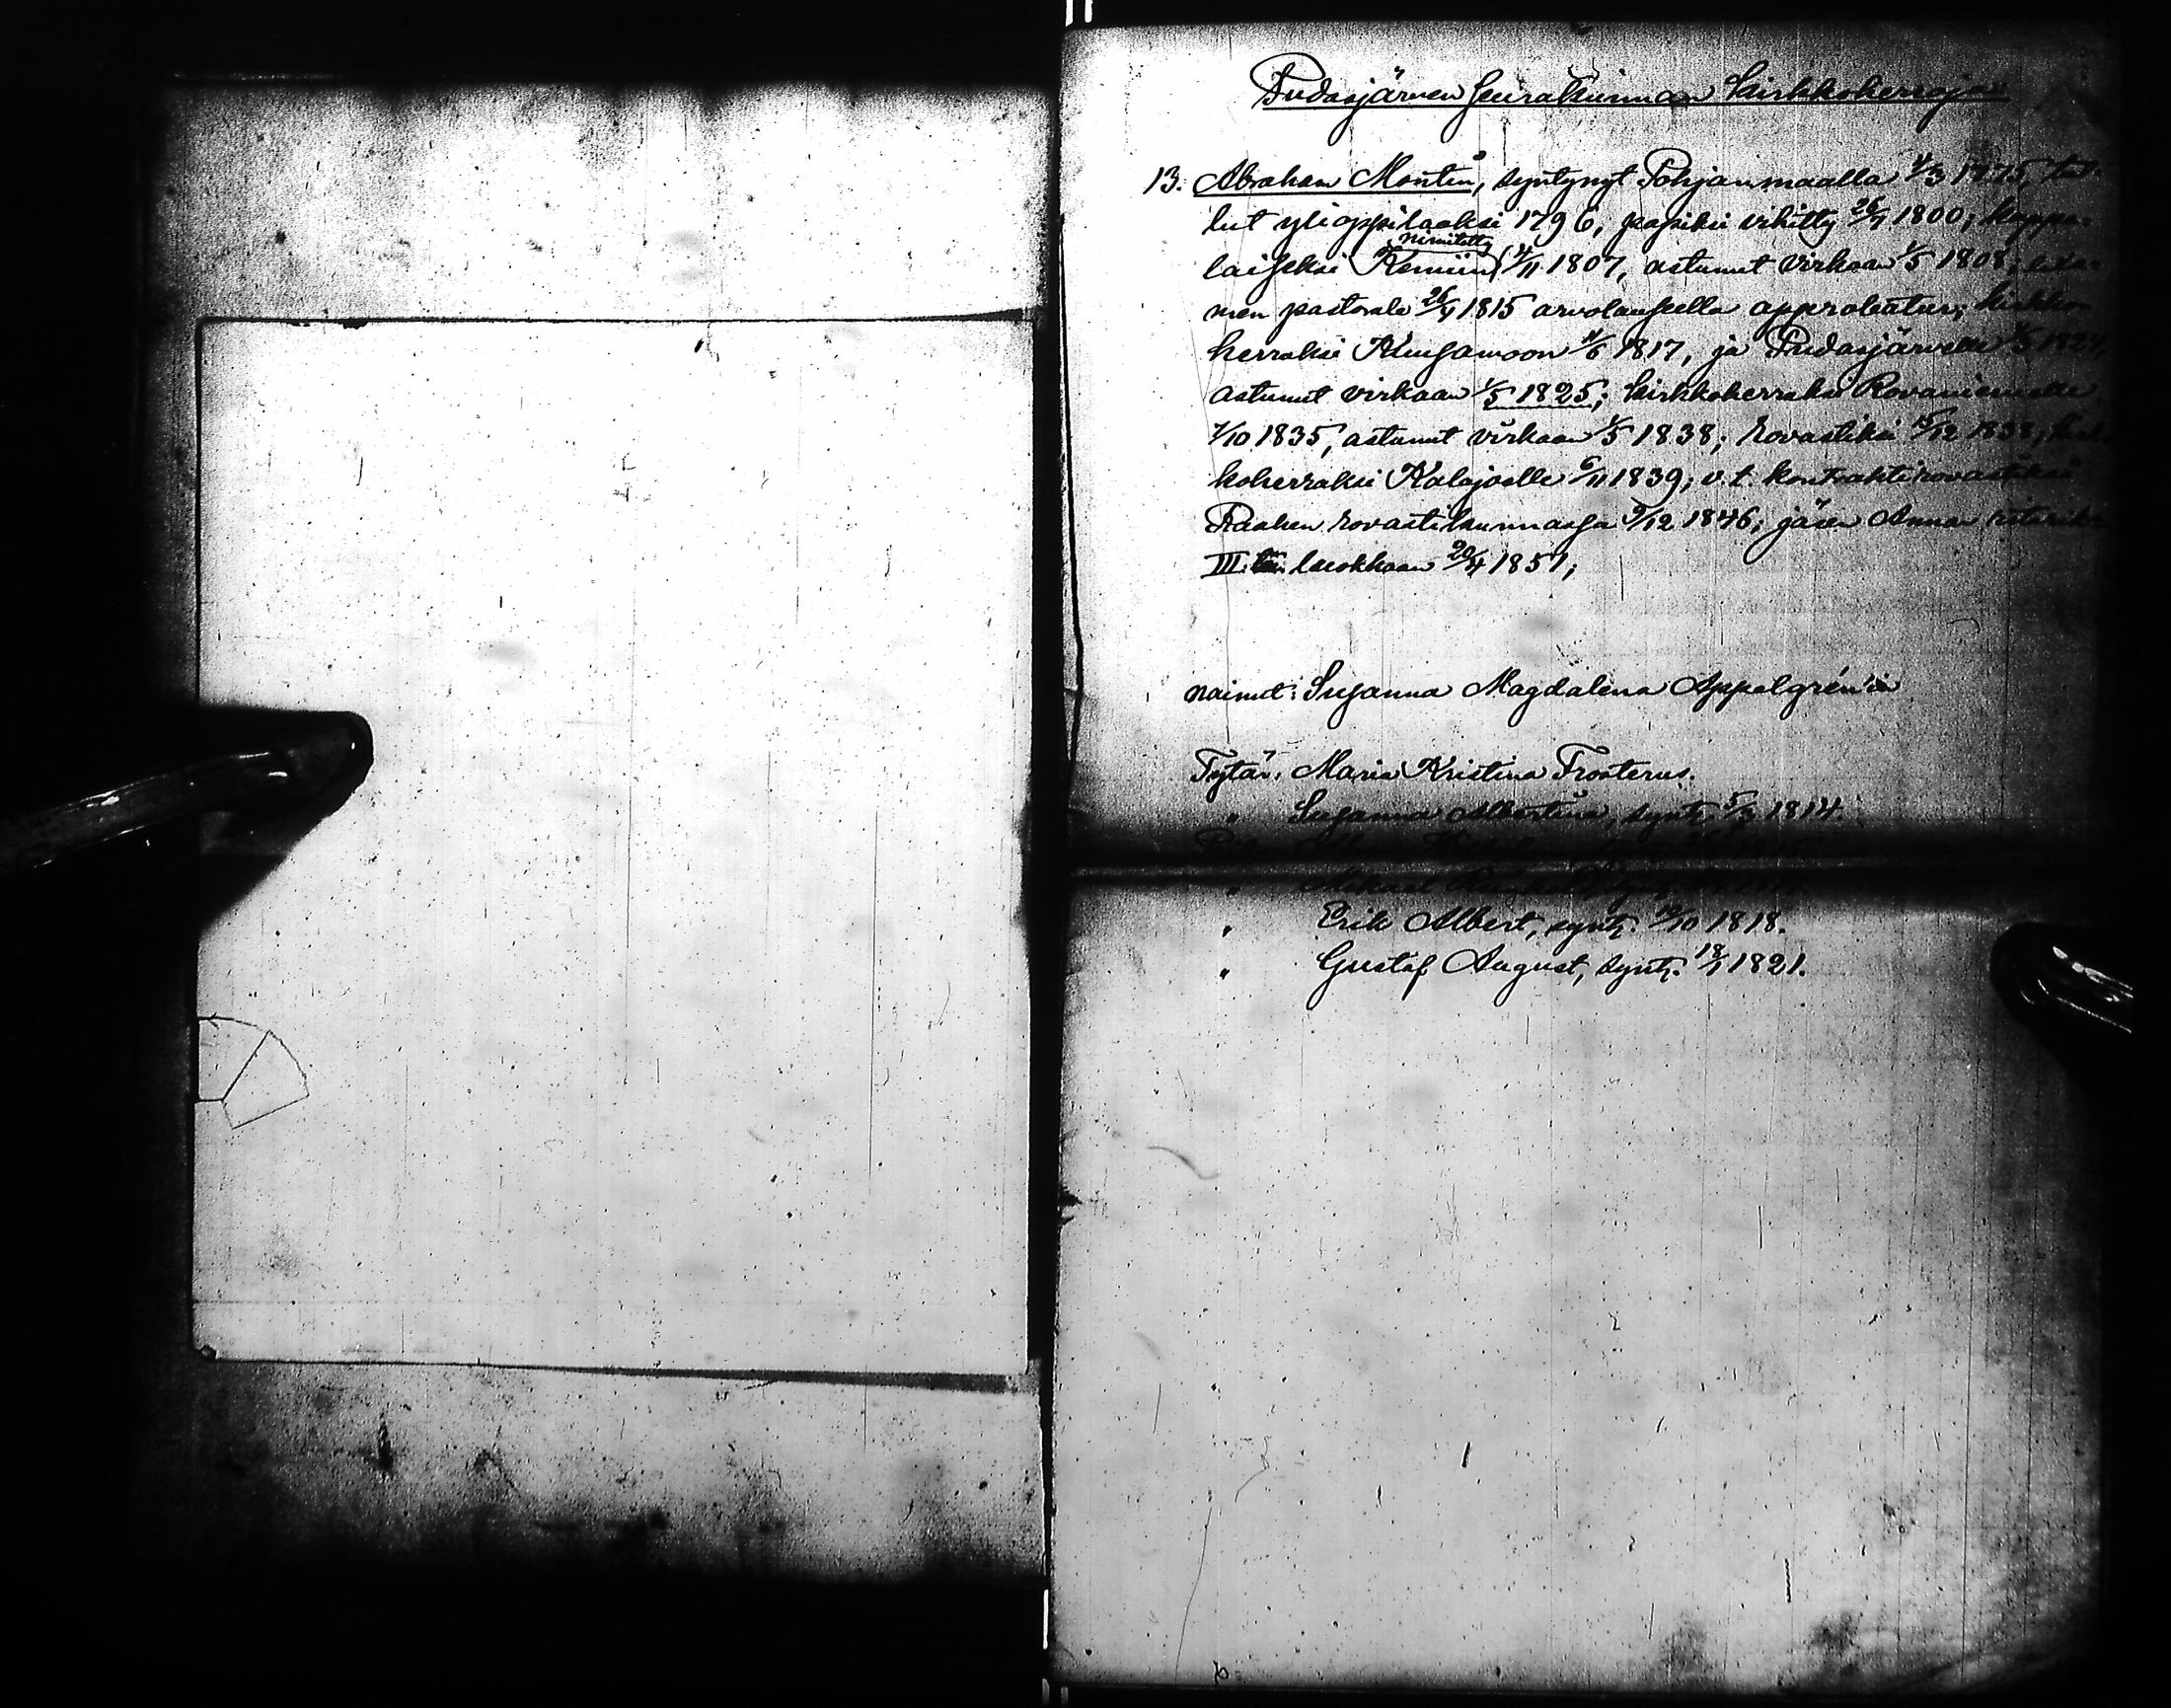 Pudasjärven seurakunnan Kirkkoherroja
13. Abraham Montin, syntynyt Pohjanmaalla 4/3 1775, tul-
lut ylioppilaaksi 1796, papiksi vihitty 26/7 1800; kappa-
laiseksi Kemiin nimitetty 4/11 1807, astunut virkaan 1/5 1808;
men pastorale 26/4 1815 arvolauseella approbatur; kirkko-
herraksi Kuusamoon 11/6 1817, ja Pudasjärvelle
astunut virkaan 1/5 1825; kirkkoherraksi Rovaniemelle
7/10 1835, astunut virkaan 1/5 1838; rovastiksi 15/12 1838; kirk-
koherraksi Kalajoelle 6/11 1839; v.t. kontrahtirovastiksi
Raahen rovastikunnassa 9/12 1846; jäsen Anna ritarik.
III: luokkaan 20/4 1851;
nainut: Susanna Magdalena Appelgrén'in
Tytär: Maria Kristina Frosterus.
" Susanna Albertina, synt. 5/3 1814.
" Erik Albert, synt. /10 1818.
" Gustaf August, synt. 18/1 1821.